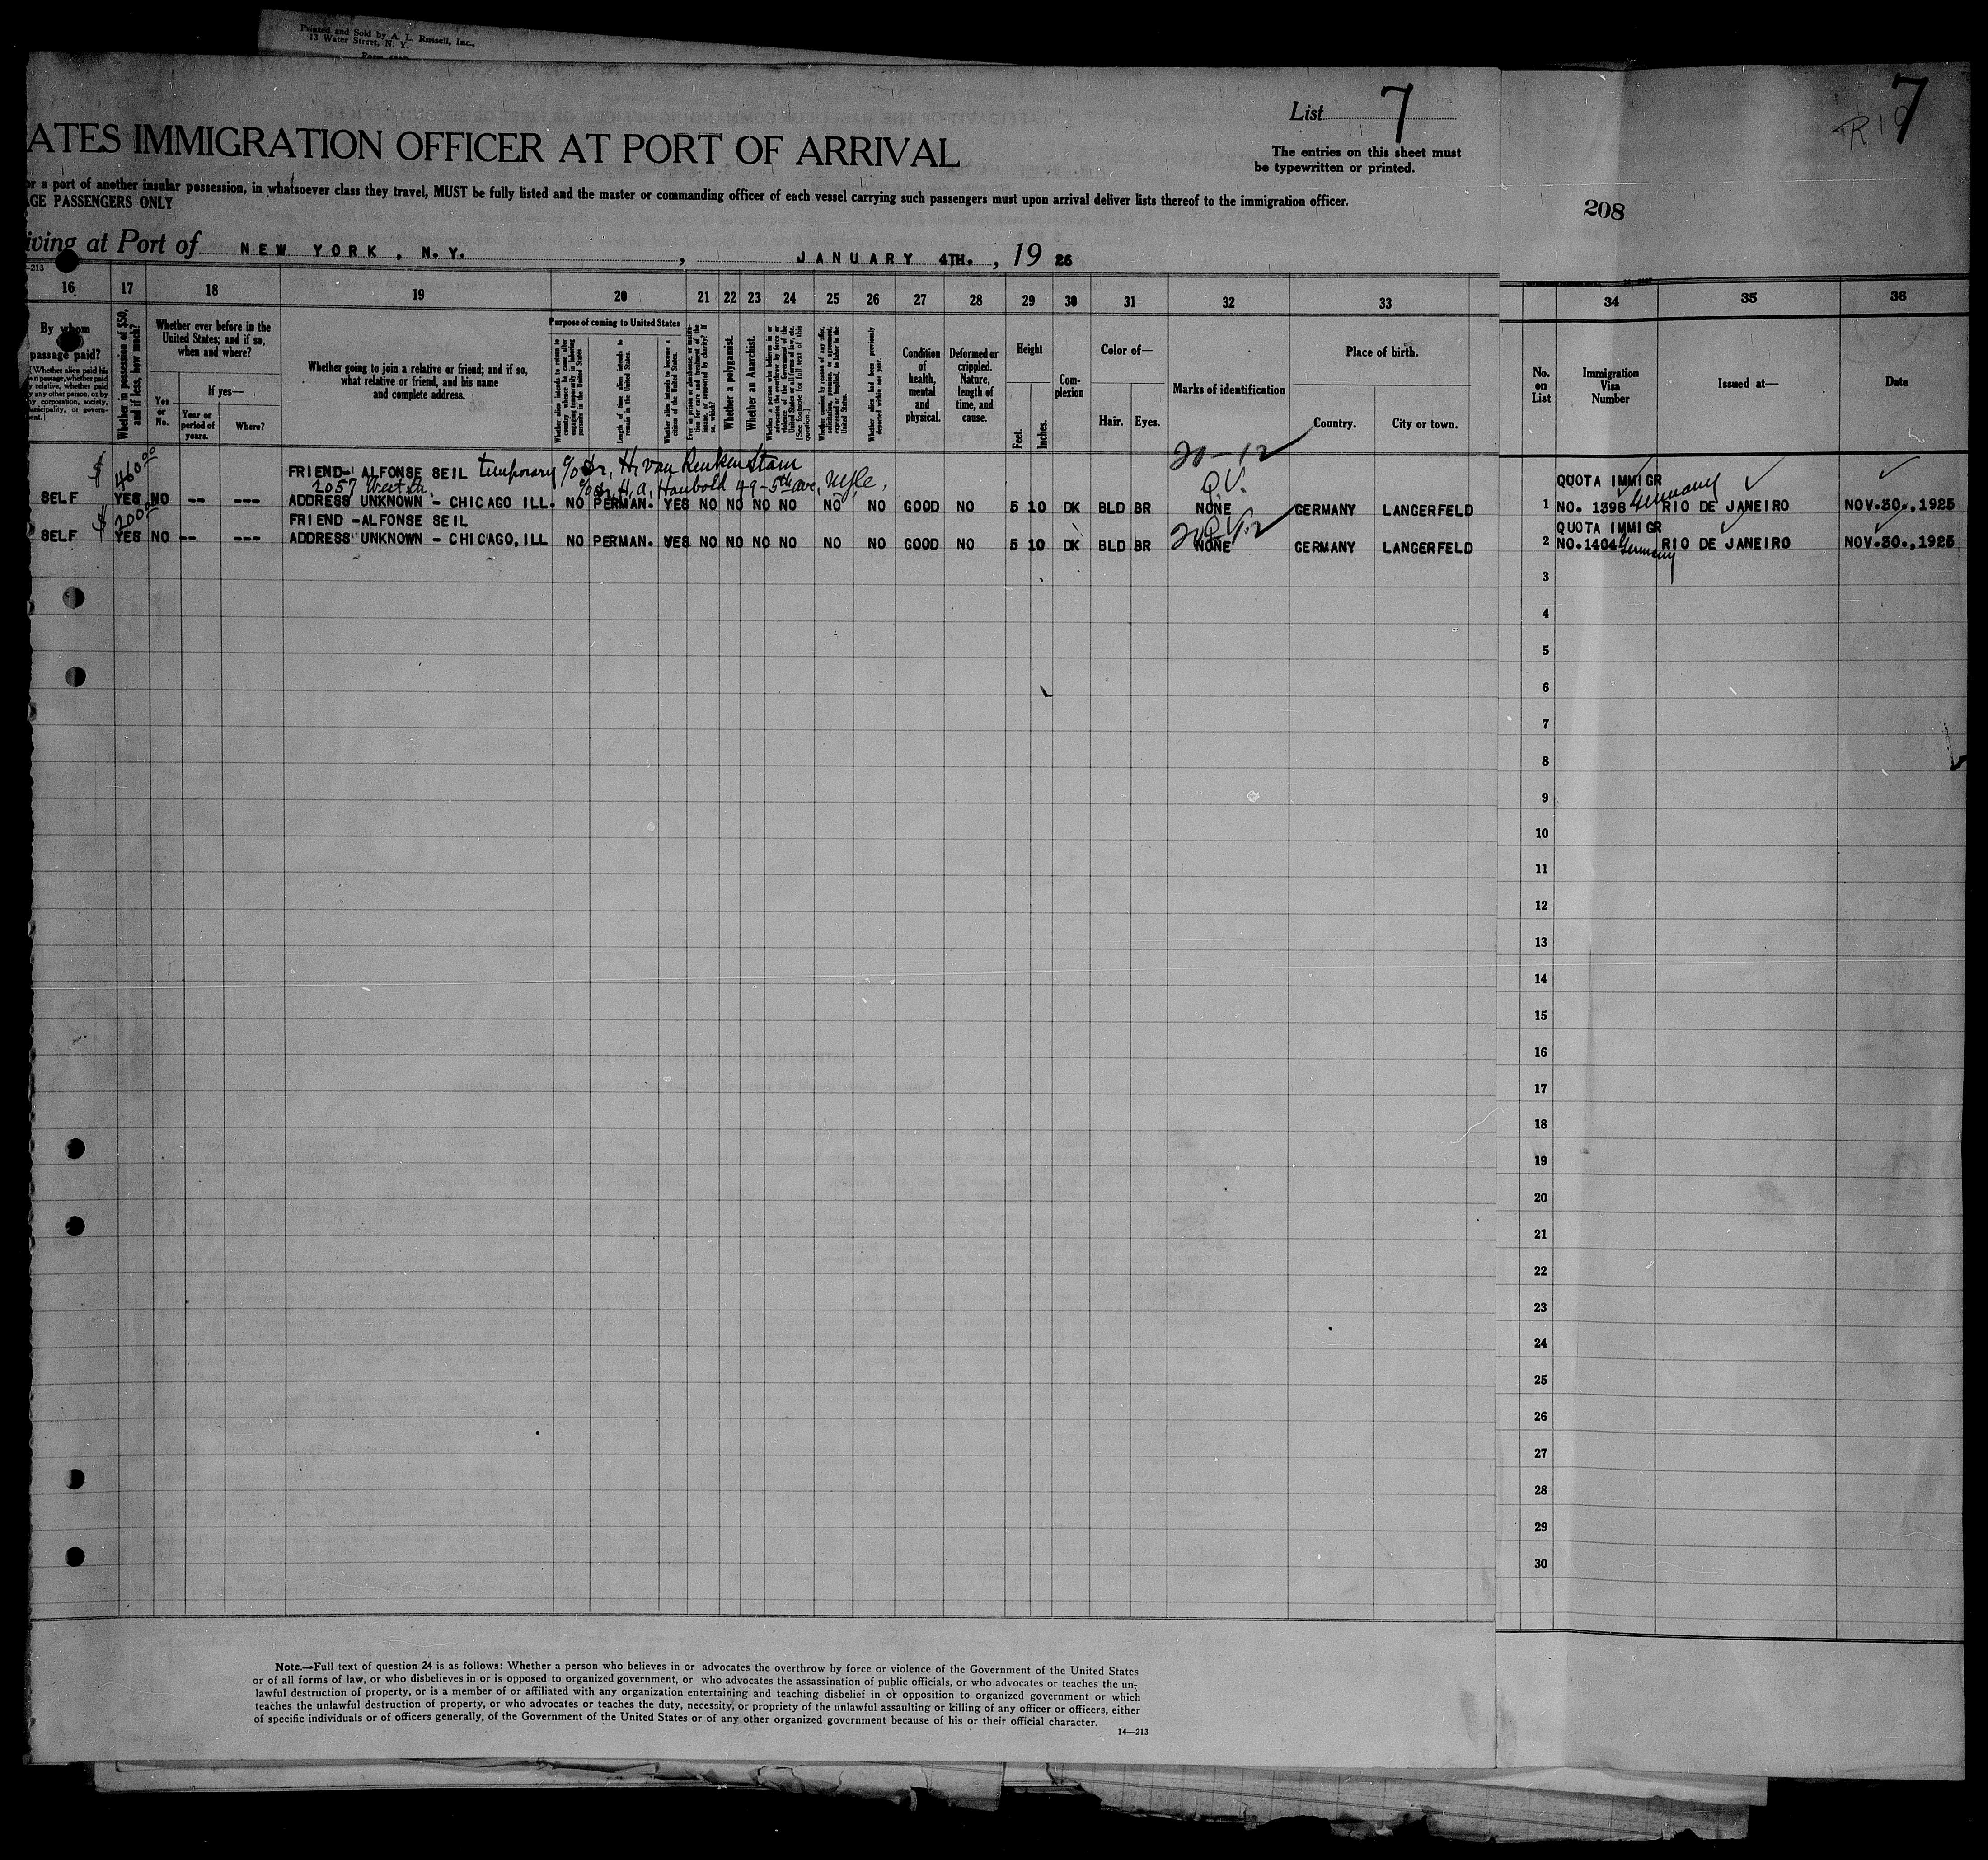 Printed and Sold by A. L. Russell, Inc.,
13 Water Street, N. Y.
List 7
7
ATES IMMIGRATION OFFICER AT PORT OF ARRIVAL
The entries on this sheet must
be typewritten or printed.
or a port of another insular possession, in whatsoever class they travel, MUST be fully listed and the master or commanding officer of each vessel carrying such passengers must upon arrival deliver lists thereof to the immigration officer.
AGE PASSENGERS ONLY
208
iving at Port of NEW YORK, N.Y., JANUARY 4TH., 19 26
-213
16 17 18 19 20 21 22 23 24 25 26 27 28 29 30 31 32 33 34 35 36
By whom
passage paid?
[Whether alien paid his
own passage, whether paid
by relative, whether paid
by any other person, or by
any corporation, society,
municipality, or govern-
ment.]
Whether in possession of $50,
and if less, how much?
Whether ever before in the
United States; and if so,
when and where?
Yes
or
No.
If yes—
Year or
period of
years.
Where?
Whether going to join a relative or friend; and if so,
what relative or friend, and his name
and complete address.
Purpose of coming to United States
Whether alien intends to return to
country whence he came after
engaging temporarily in laboring
pursuits in the United States.
Length of time alien intends to
remain in the United States.
Whether alien intends to become a
citizen of the United States.
Ever in prison or almshouse, or institu-
tion for care and treatment of the
insane, or supported by charity? If
so, which?
Whether a polygamist.
Whether an Anarchist.
Whether a person who believes in or
advocates the overthrow by force or
violence of the Government of the
United States or all forms of law, etc.
[See footnote for full text of this
question.]
Whether coming by reason of any offer,
solicitation, promise, or agreement,
expressed or implied, to labor in the
United States.
Whether alien had been previously
deported within one year.
Condition
of
health,
mental
and
physical.
Deformed or
crippled.
Nature,
length of
time, and
cause.
Height
Feet.
Inches.
Com-
plexion
Color of—
Hair.
Eyes.
Marks of identification
Place of birth.
Country.
City or town.
No.
on
List
Immigration
Visa
Number
Issued at—
Date
20-12
$ 460 00
FRIEND- ALFONSE SEIL temporary c/o Dr. H. van
2057 West c/o Dr. H. A. Haubold 49-5th Ave,
Q.V.
QUOTA IMMIGR
SELF YES NO -- --- ADDRESS UNKNOWN - CHICAGO ILL. NO PERMAN. YES NO NO NO NO NO NO GOOD NO 5 10 DK BLD BR NONE GERMANY LANGERFELD 1 NO. 1398 Germany RIO DE JANEIRO NOV.30., 1925
$ 200 00
FRIEND -ALFONSE SEIL
QUOTA IMMIGR
SELF YES NO -- --- ADDRESS UNKNOWN - CHICAGO, ILL NO PERMAN. YES NO NO NO NO NO NO GOOD NO 5 10 DK BLD BR NONE GERMANY LANGERFELD 2 NO.1404 Germany RIO DE JANEIRO NOV.30.,1925
3
4
5
6
7
8
9
10
11
12
13
14
15
16
17
18
19
20
21
22
23
24
25
26
27
28
29
30
Note.—Full text of question 24 is as follows: Whether a person who believes in or advocates the overthrow by force or violence of the Government of the United States
or of all forms of law, or who disbelieves in or is opposed to organized government, or who advocates the assassination of public officials, or who advocates or teaches the un-
lawful destruction of property, or is a member of or affiliated with any organization entertaining and teaching disbelief in or opposition to organized government or which
teaches the unlawful destruction of property, or who advocates or teaches the duty, necessity, or propriety of the unlawful assaulting or killing of any officer or officers, either
of specific individuals or of officers generally, of the Government of the United States or of any other organized government because of his or their official character.
14—213